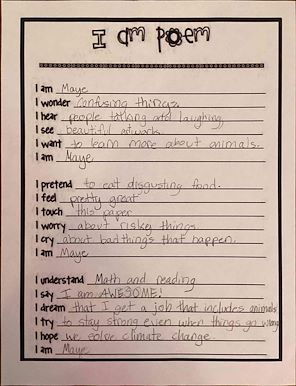 I am poem
I am Maye
I wonder confusing things.
I hear people talking and laughing.
I see beautiful artwork.
I want to learn more about animals.
I am Maye
I pretend to eat disgusting food.
I feel pretty great
I touch this paper
I worry about riskey things
I cry about bad things that happen.
I am Maye
I understand Math and reading
I say I am AWESOME!
I dream that I get a job that includes animals
I try to stay strong even when things go wrong
I hope we solve climate change.
I am Maye